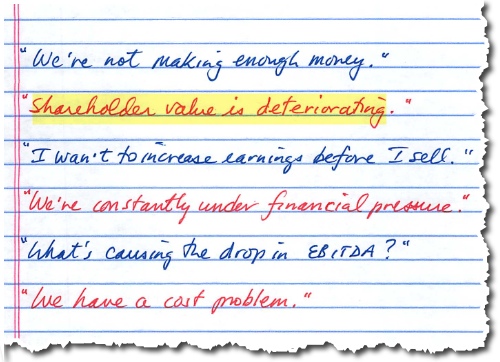 "We're not making enough money."
"Shareholder value is deteriorating."
"I want to increase earnings before I sell."
"We're constantly under financial pressure."
"What's causing the drop in EBITDA?"
"We have a cost problem."